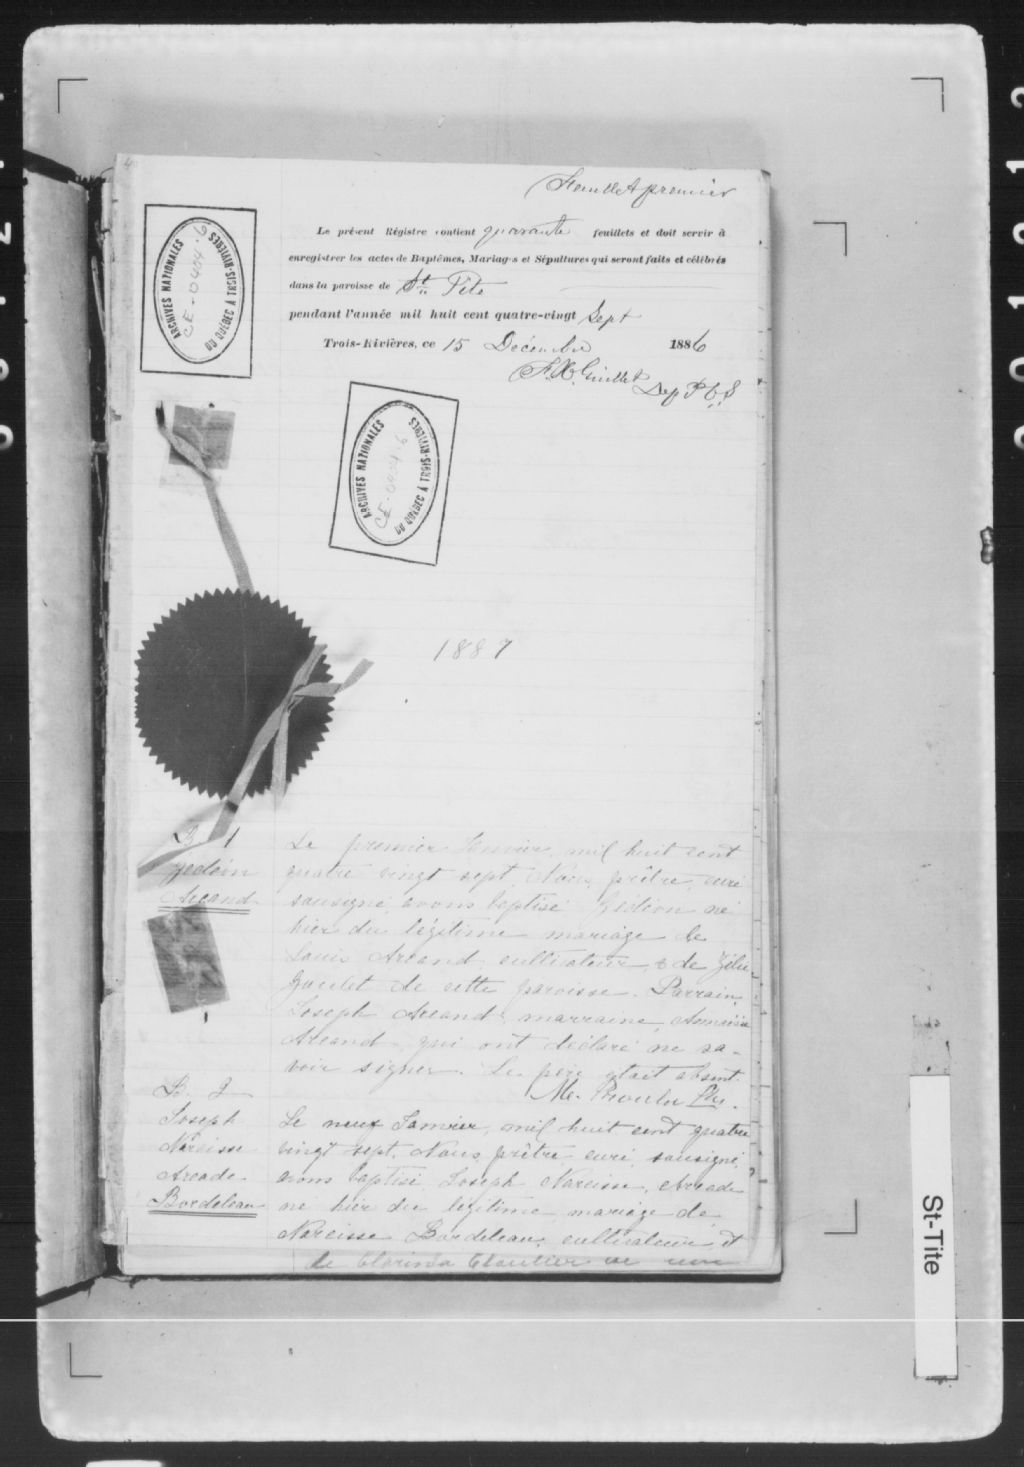 Feuillet premier
Le présent Régistre contient quarante feuillets et doit servir à
enregistrer les actes de Baptêmes, Mariages et Sépultures qui seront faits et célébrés
dans la paroisse de St Tite
pendant l'année mil huit cent quatre-vingt Sept
Trois-Rivières, ce 15 Décembre 1886
F.X. Guillet
Dep P C S
ARCHIVES NATIONALES
DU QUÉBEC À TROIS-RIVIÈRES
CE-0404-6
ARCHIVES NATIONALES
DU QUÉBEC À TROIS-RIVIÈRES
CE-0404-6
1887
B 1
Gédéon
Arcand
Le premier Janvier, mil huit cent
quatre vingt sept Nous, prêtre, curé
sousigné avons baptisé Gédéon né
hier du légitime mariage de
Louis Arcand, cultivateur & de Zélie
Goulet de cette paroisse. Parrain,
Joseph Arcand, marraine,
Arcand qui ont déclaré ne sa-
voir signer. Le père était absent.
Me. Proulx Ptr.
B. 2
Joseph
Narcisse
Arcade
Bordeleau
Le neuf Janvier, mil huit cent quatre
vingt sept, Nous, prêtre curé sousigné,
avons baptisé Joseph Narcisse, Arcade
né hier du légitime mariage de
Narcisse Bordeleau, cultivateur, et
de Clarinda Cloutier de
St-Tite